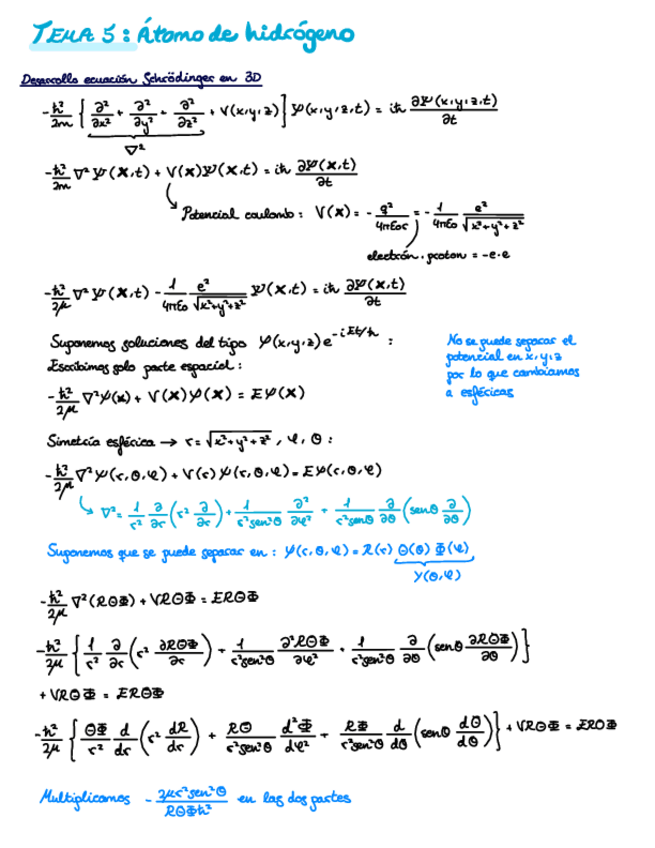 TEMA 5: Átomo de hidrógeno
Desarrollo ecuación Schrödinger en 3D
-ħ²/2m { ∂²/∂x² + ∂²/∂y² + ∂²/∂z² + V(x,y,z) ] Ψ(x,y,z,t) = iħ ∂Ψ(x,y,z,t)/∂t
∇²
-ħ²/2m ∇²Ψ(x,t) + V(x)Ψ(x,t) = iħ ∂Ψ(x,t)/∂t
Potencial coulomb: V(x) = - q²/4πε₀r = - 1/4πε₀ e²/√x²+y²+z²
electrón · proton = -e·e
-ħ²/2μ ∇²Ψ(x,t) - 1/4πε₀ e²/√x²+y²+z² Ψ(x,t) = iħ ∂Ψ(x,t)/∂t
Suponemos soluciones del tipo φ(x,y,z)e^-iEt/ħ :
Escribimos solo parte espacial:
No se puede separar el
potencial en x,y,z
por lo que cambiamos
a esféricas
-ħ²/2μ ∇²φ(x) + V(x)φ(x) = Eφ(x)
Simetría esférica → r = √x²+y²+z² , φ, θ :
-ħ²/2μ ∇²φ(r,θ,φ) + V(r)φ(r,θ,φ) = Eφ(r,θ,φ)
∇² = 1/r² ∂/∂r (r² ∂/∂r) + 1/r²sen²θ ∂²/∂φ² + 1/r²senθ ∂/∂θ (senθ ∂/∂θ)
Suponemos que se puede separar en: φ(r,θ,φ) = R(r) Θ(θ) Φ(φ)
Y(θ,φ)
-ħ²/2μ ∇²(RΘΦ) + VRΘΦ = ERΘΦ
-ħ²/2μ { 1/r² ∂/∂r (r² ∂RΘΦ/∂r) + 1/r²sen²θ ∂²RΘΦ/∂φ² + 1/r²sen²θ ∂/∂θ (senθ ∂RΘΦ/∂θ) }
+ VRΘΦ = ERΘΦ
-ħ²/2μ { ΘΦ/r² d/dr (r² dR/dr) + RΘ/r²sen²θ d²Φ/dφ² + RΦ/r²sen²θ d/dθ (senθ dΘ/dθ) } + VRΘΦ = ERΘΦ
Multiplicamos - 2μr²sen²θ/RΘΦħ² en las dos partes